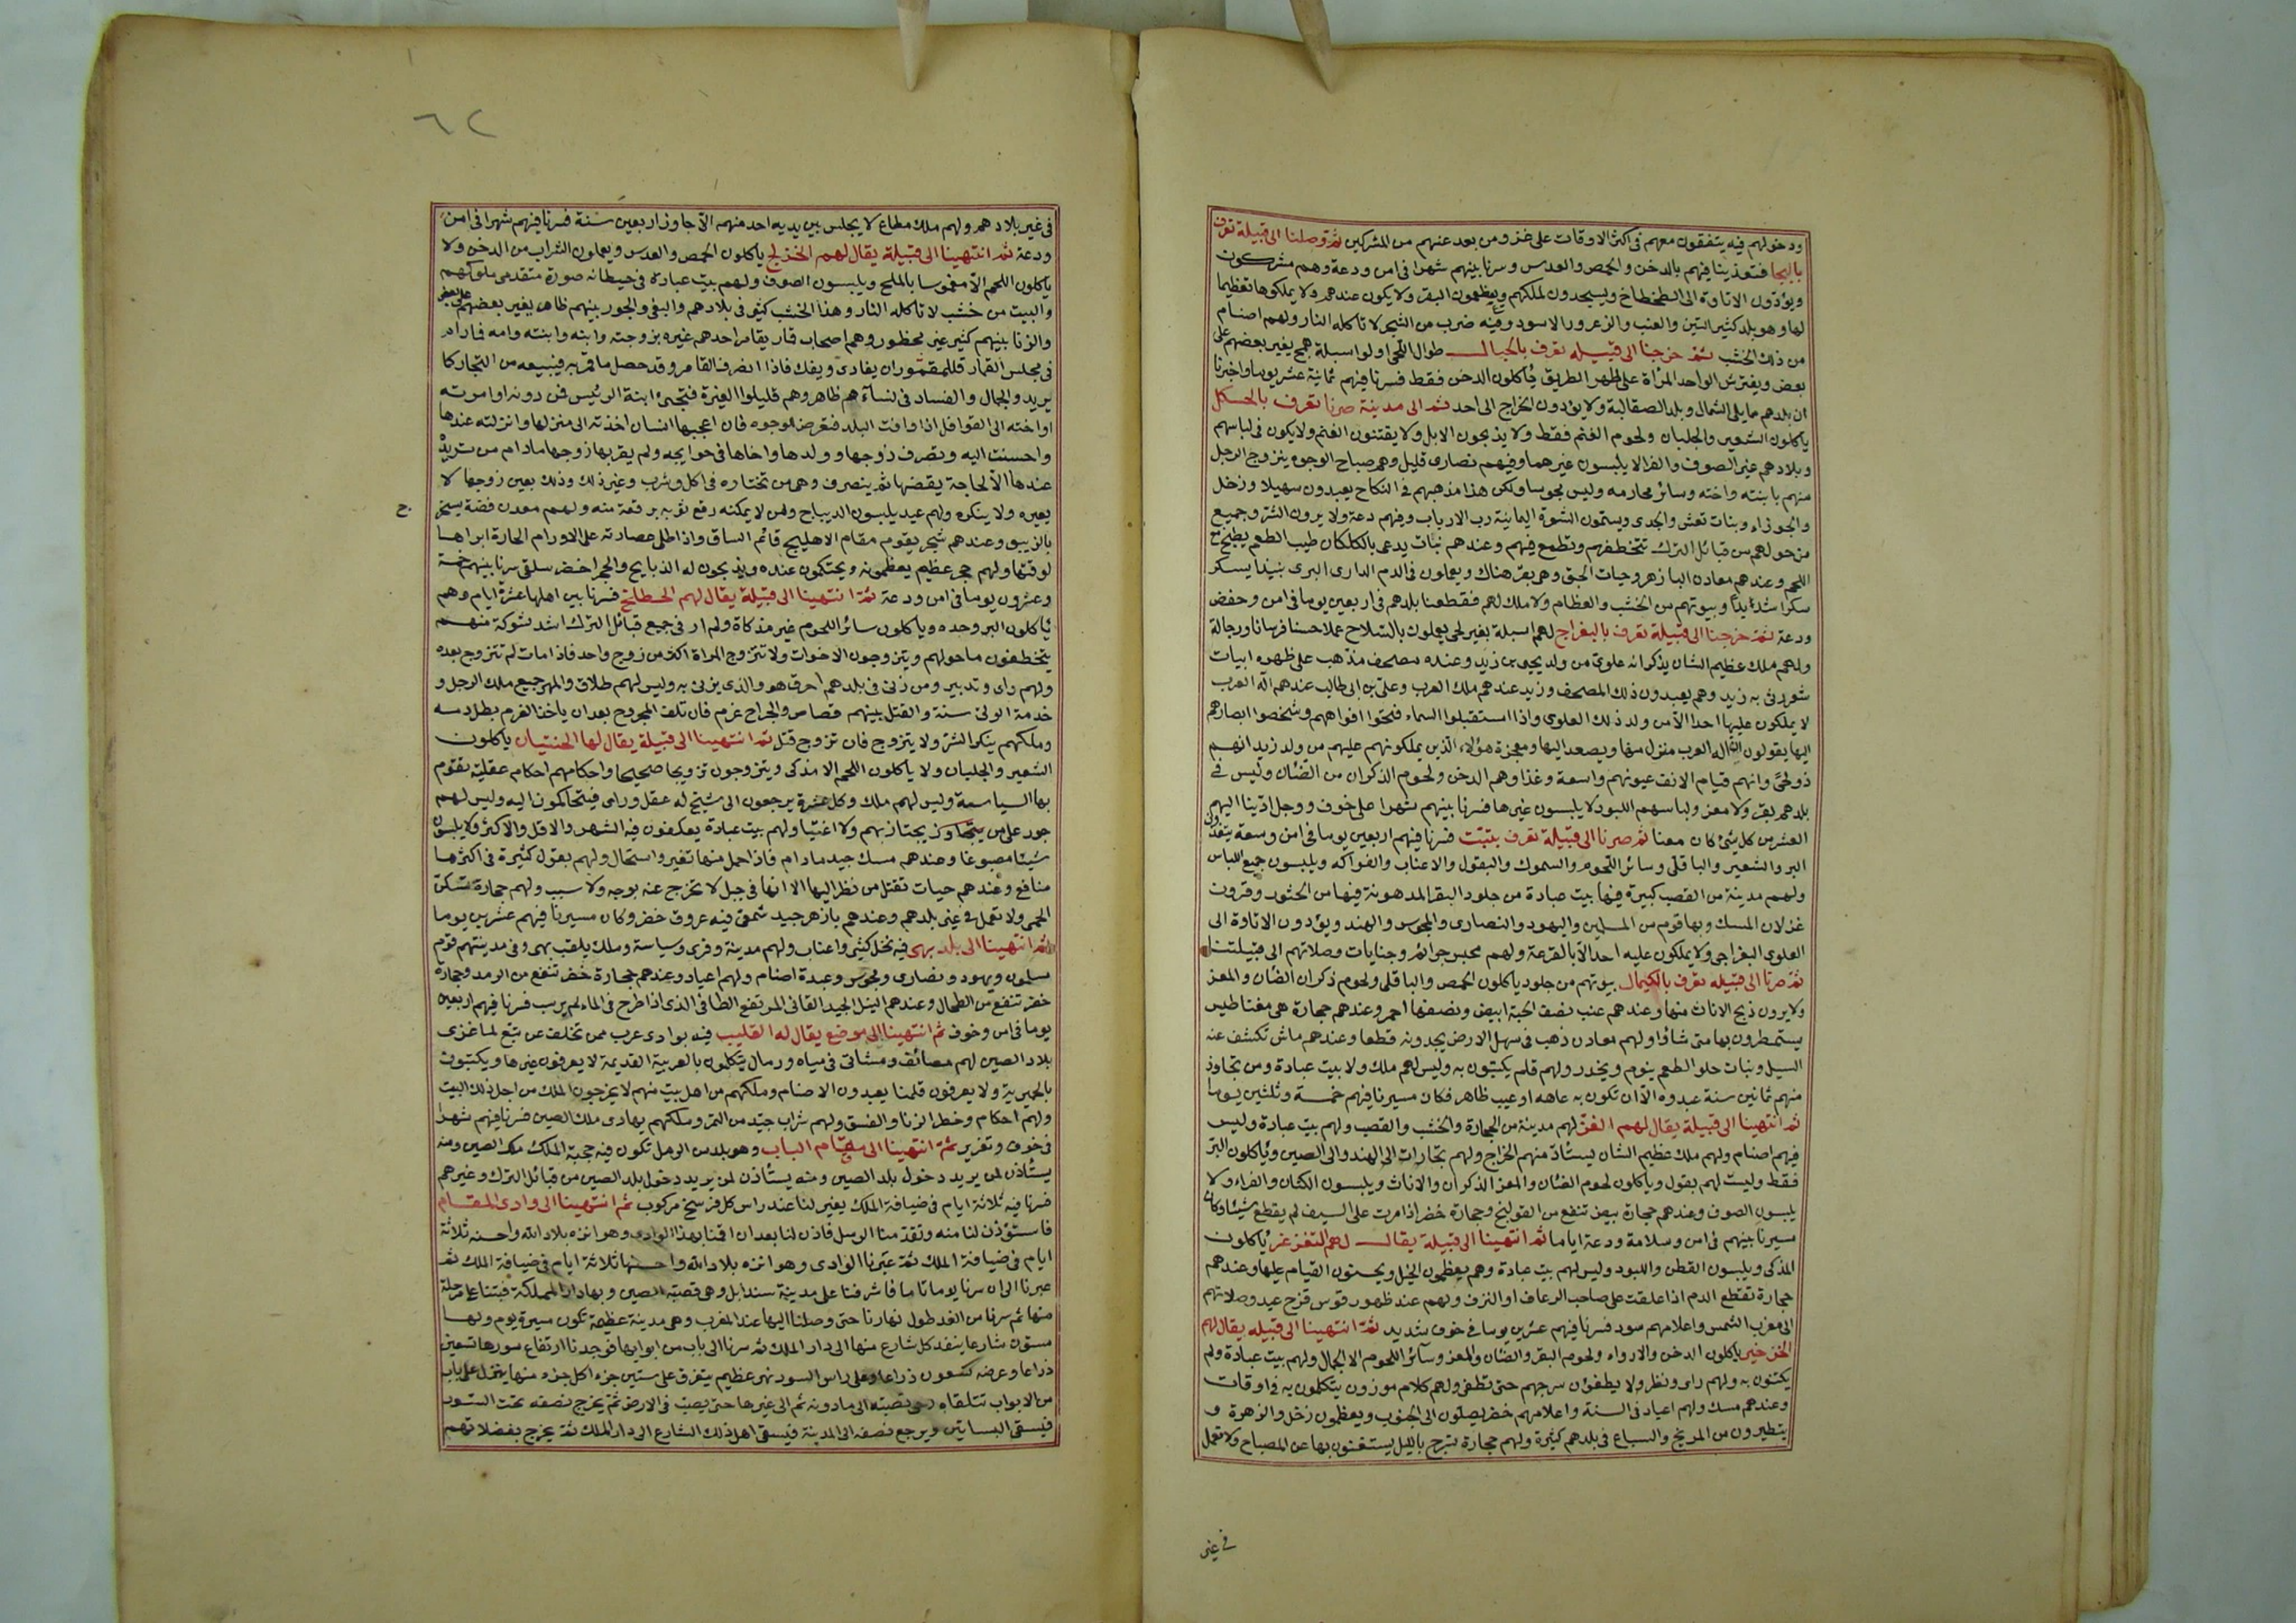 ودخولهم فيه يتفقون معهم فى اكثر الاوقات على غزو من بعد عنهم من المشركين ثم وصلنا الى قبيلة تعرف
بالبجا فتغذينا فيهم بالدخن والحمص والعدس وسرنا بينهم شهرا فى امن ودعة وهم مشركون
ويؤدون الاتاوة الى الطخطاخ ويسجدون لملكهم ويعظمون البقر ولا يكون عندهم ولا يملكوها تعظيما
لها وهو بلد كثير التين والعنب والزعرور الاسود وفيه ضرب من الشجر لا تاكله النار ولهم اصنام
من ذلك الخشب ثم خرجنا الى قبيله تعرف بالجبال طوال اللحى اولوا سبلة همج يغير بعضهم على
بعض ويفترش الواحد المراة على ظهر الطريق ياكلون الدخن فقط فسرنا فيهم ثمانية عشر يوما واخبرنا
ان بلدهم مما يلى الشمال وبلد الصقالبة ولا يؤدون الخراج الى احد ثم الى مدينة صرنا تعرف بالحكل
ياكلون الشعير والجلبان ولحوم الغنم فقط ولا يذبحون الابل ولا يقتنون الغنم ولا يكون فى لباسهم
وبلادهم غير الصوف والفرا لا يلبسون غيرهما وفيهم نصارى قليل وهم صباح الوجوه يتزوج الرجل
منهم بابنته واخته وسائر محارمه وليس مجوسا ولكن هذا مذهبهم فى النكاح يعبدون سهيلا وزحل
والجوزاء وبنات نعش والجدى ويسمون الشعرى اليمانية رب الارباب وفيهم دعة ولا يرون الشر وجميع
من حولهم من قبائل الترك تتخطفهم وتطمع فيهم وعندهم نبات يدعى بالكلكان طيب الطعم يطبخ مع
اللحم وعندهم معادن البازهر وحيات الجق وهى بقر هناك ويعملون فى الدم الدارى البرى نبيذا يسكر
سكرا شديدا وبيوتهم من الخشب والعظام ولا ملك لهم فقطعنا بلدهم فى اربعين يوما فى امن وخفض
ودعة ثم خرجنا الى قبيلة تعرف بالبغراج لهم اسبلة بغير لحى يعملون بالسلاح عملا حسنا فرسانا ورجالة
ولهم ملك عظيم الشان يذكر انه علوى من ولد يحيى بن زيد وعنده مصحف مذهب على ظهره ابيات
شعر رثى به زيد وهم يعبدون ذلك المصحف وزيد عندهم ملك العرب وعلى بن ابى طالب عندهم اله العرب
لا يملكون عليها احدا الا من ولد ذلك العلوى واذا استقبلوا السماء فتحوا افواههم وشخصوا ابصارهم
اليها يقولون ان اله العرب منزل منها ويصعد اليها ومعجزة هؤلاء الذين يملكونهم عليهم من ولد زيد انهم
ذو لحى وانهم قيام الانف عيونهم واسعة وغذاؤهم الدخن ولحوم الذكران من الضان وليس فى
بلدهم بقر ولا معز ولباسهم اللبود لا يلبسون غيرها فسرنا بينهم شهرا على خوف ووجل ادينا اليهم
العشر من كل شئ كان معنا ثم صرنا الى قبيلة تعرف بتبت فسرنا فيهم اربعين يوما فى امن وسعة يتغذون
البر والشعير والباقلى وسائر اللحوم والسموك والبقول والاعناب والفواكه ويلبسون جميع اللباس
ولهم مدينة من القصب كبيرة فيها بيت عبادة من جلود البقر المدهونة فيها من الخثور وقرون
غزلان المسك وبها قوم من المسلمين واليهود والنصارى والمجوس والهند ويؤدون الاتاوة الى
العلوى البغراجى ولا يملكون عليه احدا الا بالقرعة ولهم محبس جرائم وجنايات وصلاتهم الى قبلتنا
ثم صرنا الى قبيله تعرف بالكيمال بيوتهم من جلود ياكلون الحمص والباقلى ولحوم ذكران الضان والمعز
ولا يرون ذبح الاناث منها وعندهم عنب نصف الحبة ابيض ونصفها احمر وعندهم حجارة هى مغناطيس
يستمطرون بها متى شاؤا ولهم معادن ذهب فى سهل الارض يجدونه قطعا وعندهم ماش تكشف عنه
السيل ونبات حلو الطعم ينوم ويخدر ولهم قلم يكتبون به وليس لهم ملك ولا بيت عبادة ومن تجاوز
منهم ثمانين سنة عبدوه الا ان تكون به عاهه او عيب ظاهر فكان مسيرنا فيهم خمسة وثلثين يوما
ثم انتهينا الى قبيلة يقال لهم الغز لهم مدينة من الحجارة والخشب والقصب ولهم بيت عبادة وليس
فيهم اصنام ولهم ملك عظيم الشان يستأد منهم الخراج ولهم تجارات الى الهند والى الصين وياكلون البر
فقط وليست لهم بقول وياكلون لحوم الضان والمعز الذكران والاناث ويلبسون الكتان والفراء ولا
يلبسون الصوف وعندهم حجارة بيض تنفع من القولنج وحجارة خضر اذا مرت على السيف لم يقطع شيئا وكان
مسيرنا بينهم فى امن وسلامة ودعة اياما ثم انتهينا الى قبيلة يقال لهم التغزغز ياكلون
المذكى ويلبسون القطن واللبود وليس لهم بيت عبادة وهم يعظمون الخيل ويحسنون القيام عليها وعندهم
حجارة تقطع الدم اذا علقت على صاحب الرعاف او النزف ولهم عند ظهور قوس قزح عيد وصلاتهم
الى مغرب الشمس واعلامهم سود فسرنا فيهم عشرين يوما فى خوف شديد ثم انتهينا الى قبيله يقال لهم
الخرخيز ياكلون الدخن والارز ولحوم البقر والضان والمعز وسائر اللحوم الا الجمال ولهم بيت عبادة وقلم
يكتبون به ولهم راى ونظر ولا يطفئون سرجهم حتى تطفى ولهم كلام موزون يتكلمون به فى اوقات
وعندهم مسك ولهم اعياد فى السنة واعلامهم خضر يصلون الى الجنوب ويعظمون زحل والزهرة و
يتطيرون من المريخ والسباع فى بلدهم كثيرة ولهم حجارة تسرج بالليل يستغنون بها عن المصباح ولا تعمل
فى غير
٦٢
فى غير بلادهم ولهم ملك مطاع لا يجلس بين يديه احد منهم الا جاوز اربعين سنة فسرنا فيهم شهرا فى امن
ودعة ثم انتهينا الى قبيلة يقال لهم الخزلج ياكلون الحمص والعدس ويعملون الشراب من الدخن ولا
ياكلون اللحم الا مغموسا بالملح ويلبسون الصوف ولهم بيت عبادة فى حيطانه صورة متقدمى ملوكهم
والبيت من خشب لا تاكله النار وهذا الخشب كثير فى بلادهم والبغى والجور بينهم ظاهر يغير بعضهم على بعض
والزنا بينهم كثير غير محظور وهم اصحاب قمار يقامر احدهم غيره بزوجته وابنه وابنته وامه فما دام
فى مجلس القمار فللمقمور ان يفادى ويفك فاذا انصرف القامر فقد حصل ما قمر به فيبيعه من التجار كما
يريد والجمال والفساد فى نسآءهم ظاهر وهم قليلوا الغيرة فتجئ ابنة الرئيس فمن دونه او امرته
او اخته الى القوافل اذا وافت البلد فتعرض للوجوه فان اعجبها انسان اخذته الى منزلها وانزلته عندها
واحسنت اليه وتصرف زوجها وولدها واخاها فى حوايجه ولم يقربها زوجها مادام من تريد
عندها الا لحاجة يقضيها ثم ينصرف وهى ومن تختاره فى اكل وشرب وغير ذلك وذلك بعين زوجها لا
يغيره ولا ينكره ولهم عيد يلبسون الديباج ومن لا يمكنه رقع ثوبه برقعة منه ولهم معدن فضة يستخرج
بالزيبق وعندهم شجر يقوم مقام الاهليلج قائم الساق واذا طلى عصارته على الاورام الحارة ابراها
لوقتها ولهم حجر عظيم يعظمونه ويحتكمون عنده ويذبحون له الذبايح والحجر اخضر سلقى سرنا بينهم خمسة
وعشرون يوما فى امن ودعة ثم انتهينا الى قبيلة يقال لهم الخطلخ فسرنا بين اهلها عشرة ايام وهم
ياكلون البر وحده وياكلون سائر اللحوم غير مذكاة ولم ار فى جميع قبائل الترك اشد شوكة منهم
يتخطفون ما حولهم ويتزوجون الاخوات ولا تتزوج المراة اكثر من زوج واحد فاذا مات لم تتزوج بعده
ولهم راى وتدبير ومن زنى فى بلدهم احرق هو والذى يزنى به وليس لهم طلاق والمهر جميع ملك الرجل و
خدمة الولى سنة والقتل بينهم قصاص وللجراح غرم فان تلف المجروح بعد ان ياخذ الغرم بطل دمه
وملكهم ينكر الشر ولا يتزوج فان تزوج قتل ثم انتهينا الى قبيلة يقال لها الختيان ياكلون
الشعير والجلبان ولا ياكلون اللحم الا مذكى ويتزوجون تزويجا صحيحا واحكامهم احكام عقلية تقوم
بها السياسة وليس لهم ملك وكل عشرة يرجعون الى شيخ له عقل وراى فيتحاكمون اليه وليس لهم
جور على من يجتاز بهم ولا اغتيا ولهم بيت عبادة يعكفون فيه الشهر والاقل والاكثر ولا يلبسون
شيئا مصبوغا وعندهم مسك جيد مادام فاذا حمل منها تغير واستحال ولهم بقول كثيرة فى اكثرها
منافع وعندهم حيات تقتل من نظر اليها الا انها فى جبل لا تخرج عنه بوجه ولا سبب ولهم حجارة تسكن
الحمى ولا تعمل فى غير بلدهم وعندهم بازهر جيد شمعى فيه عروق خضر وكان مسيرنا فيهم عشرين يوما
ثم انتهينا الى بلد بهى فيه نخل كثير واعناب ولهم مدينة وقرى وسياسة وملك يلقب بهى وفى مدينتهم قوم
مسلمون ويهود ونصارى ومجوس وعبدة اصنام ولهم اعياد وعندهم حجارة خضر تنفع من الرمد وحجارة
حمر تنفع من الطحال وعندهم النيل الجيد القانى المرتفع الطافى الذى اذا طرح فى الماء لم يرسب فسرنا فيهم اربعين
يوما فى امن وخوف ثم انتهينا الى موضع يقال له القليب فيه بوادى عرب ممن تخلف عن تبع لما غزى
بلاد الصين لهم مصائف ومشاتى فى مياه ورمال يتكلمون بالعربية القديمة لا يعرفون غيرها ويكتبون
بالحميرية ولا يعرفون قلمنا يعبدون الاصنام وملكهم من اهل بيت منهم لا يخرجون الملك من اجل ذلك البيت
ولهم احكام وحظر الزنا والفسق ولهم شراب جيد من التمر وملكهم يهادى ملك الصين فسرنا فيهم شهرا
فى خوف وتغرير ثم انتهينا الى مقام الباب وهو بلد من الرمل تكون فيه حجبة الملك ملك الصين ومنه
يستأذن لمن يريد دخول بلد الصين ومنه يستأذن لمن يريد دخول بلد الصين من قبائل الترك وغيرهم
فسرنا فيه ثلاثة ايام فى ضيافة الملك يغير لنا عند راس كل فرسخ مركوب ثم انتهينا الى وادى المقام
فاستؤذن لنا منه وتقدمنا الرسل فاذن لنا بعد ان اقمنا بهذا الوادى وهو انزه بلاد الله واحسنه ثلاثة
ايام فى ضيافة الملك ثم عبرنا الوادى وهو انزه بلاد الله واحسنها ثلاثة ايام فى ضيافة الملك ثم
عبرنا الى ان سرنا يوما تاما فاشرفنا على مدينة سندابل وهى قصبة الصين وبها دار المملكة فبتنا على مرحلة
منها ثم سرنا من الغد طول نهارنا حتى وصلنا اليها عند المغرب وهى مدينة عظيمة تكون مسيرة يوم ولها
ستون شارعا ينفد كل شارع منها الى دار الملك ثم سرنا الى باب من ابوابها فوجدنا ارتفاع سورها تسعين
ذراعا وعرضه تسعون ذراعا وعلى راس السور نهر عظيم يتفرق على ستين جزء اكل جزء منها ينزل على باب
من الابواب تتلقاه رحى تصبه الى مادونه ثم الى غيرها حتى يصب فى الارض ثم يخرج نصفه تحت السور
فيسقى البساتين ويرجع نصفه الى المدينة فيسقى اهل ذلك الشارع الى دار الملك ثم يخرج بفضلاتهم